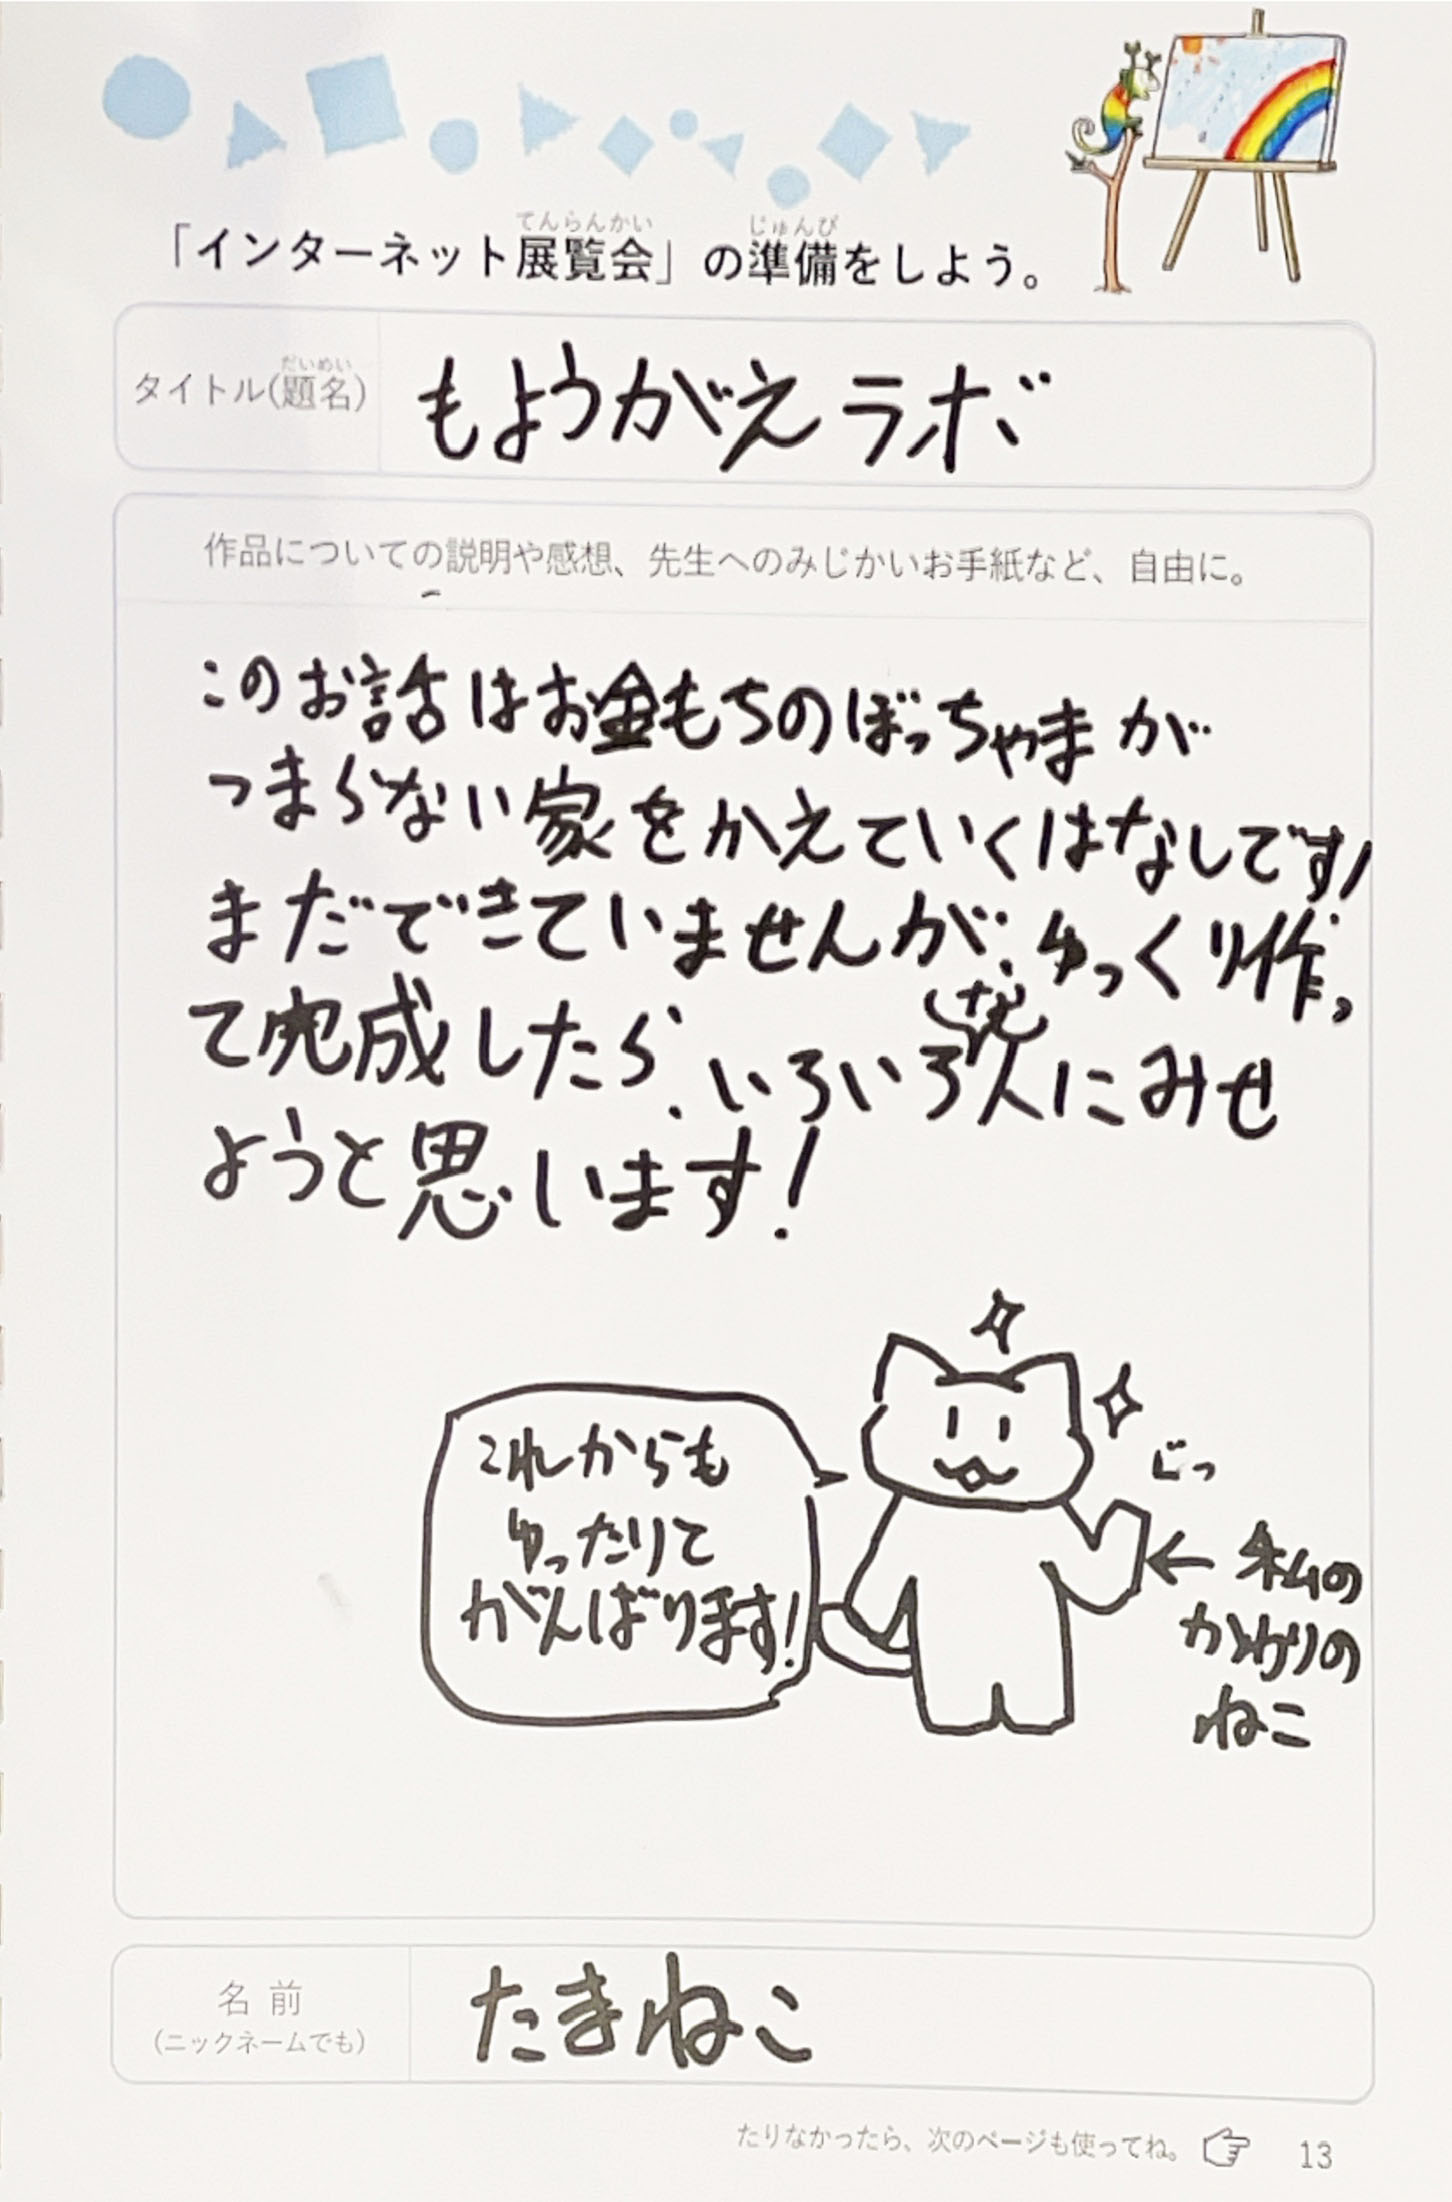 てんらんかい じゅんび
「インターネット展覧会」の準備をしよう。
だいめい
タイトル(題名) もようがえラボ
作品についての説明や感想、先生へのみじかいお手紙など、自由に。
このお話はお金もちのぼっちゃまが
つまらない家をかえていくはなしです!
まだできていませんが、ゆっくり作っ
て完成したら、いろいろな人にみせ
ようと思います!
これからも
ゆったりて
がんばります!
ぐっ
←私の
かわりの
ねこ
名前
(ニックネームでも) たまねこ
たりなかったら、次のページも使ってね。
13